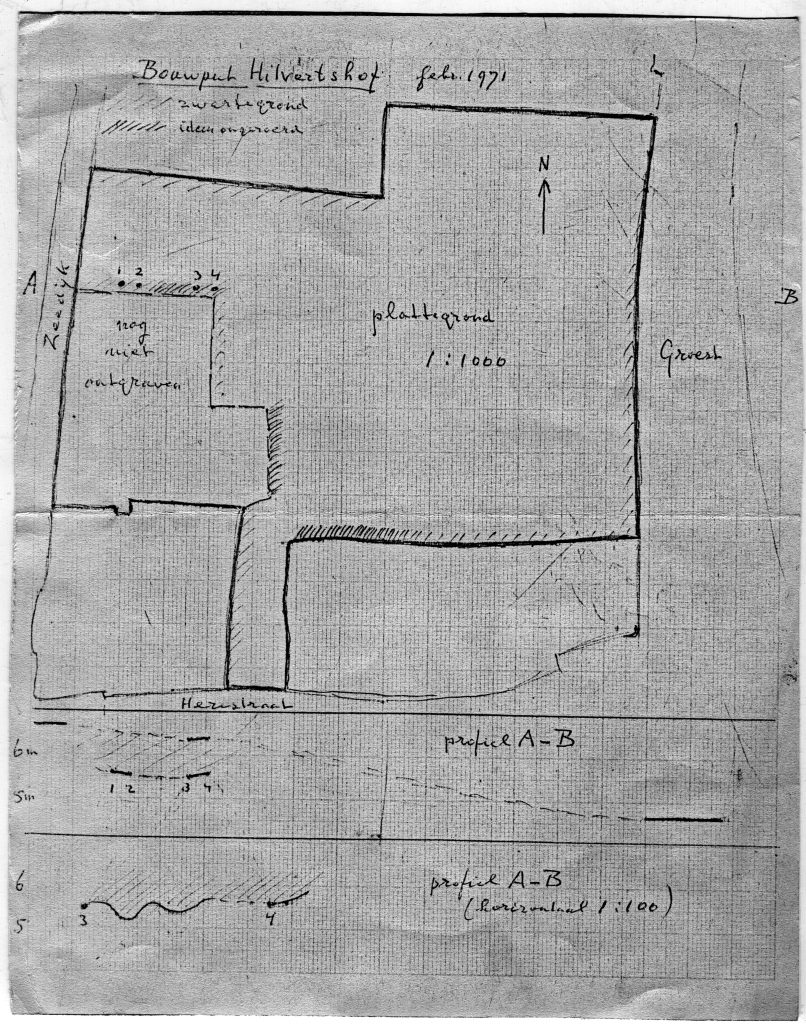 Bouwput Hilvertshof febr. 1971
zwartegrond
idem ongeroerd
N
A
Zeedijk
1 2 3 4
B
nog
niet
ontgraven
plattegrond
1:1000
Groest
Herenstraat
6m
5m
1 2 3 4
profiel A-B
6
5
3
4
profiel A-B
(horizontaal 1:100)